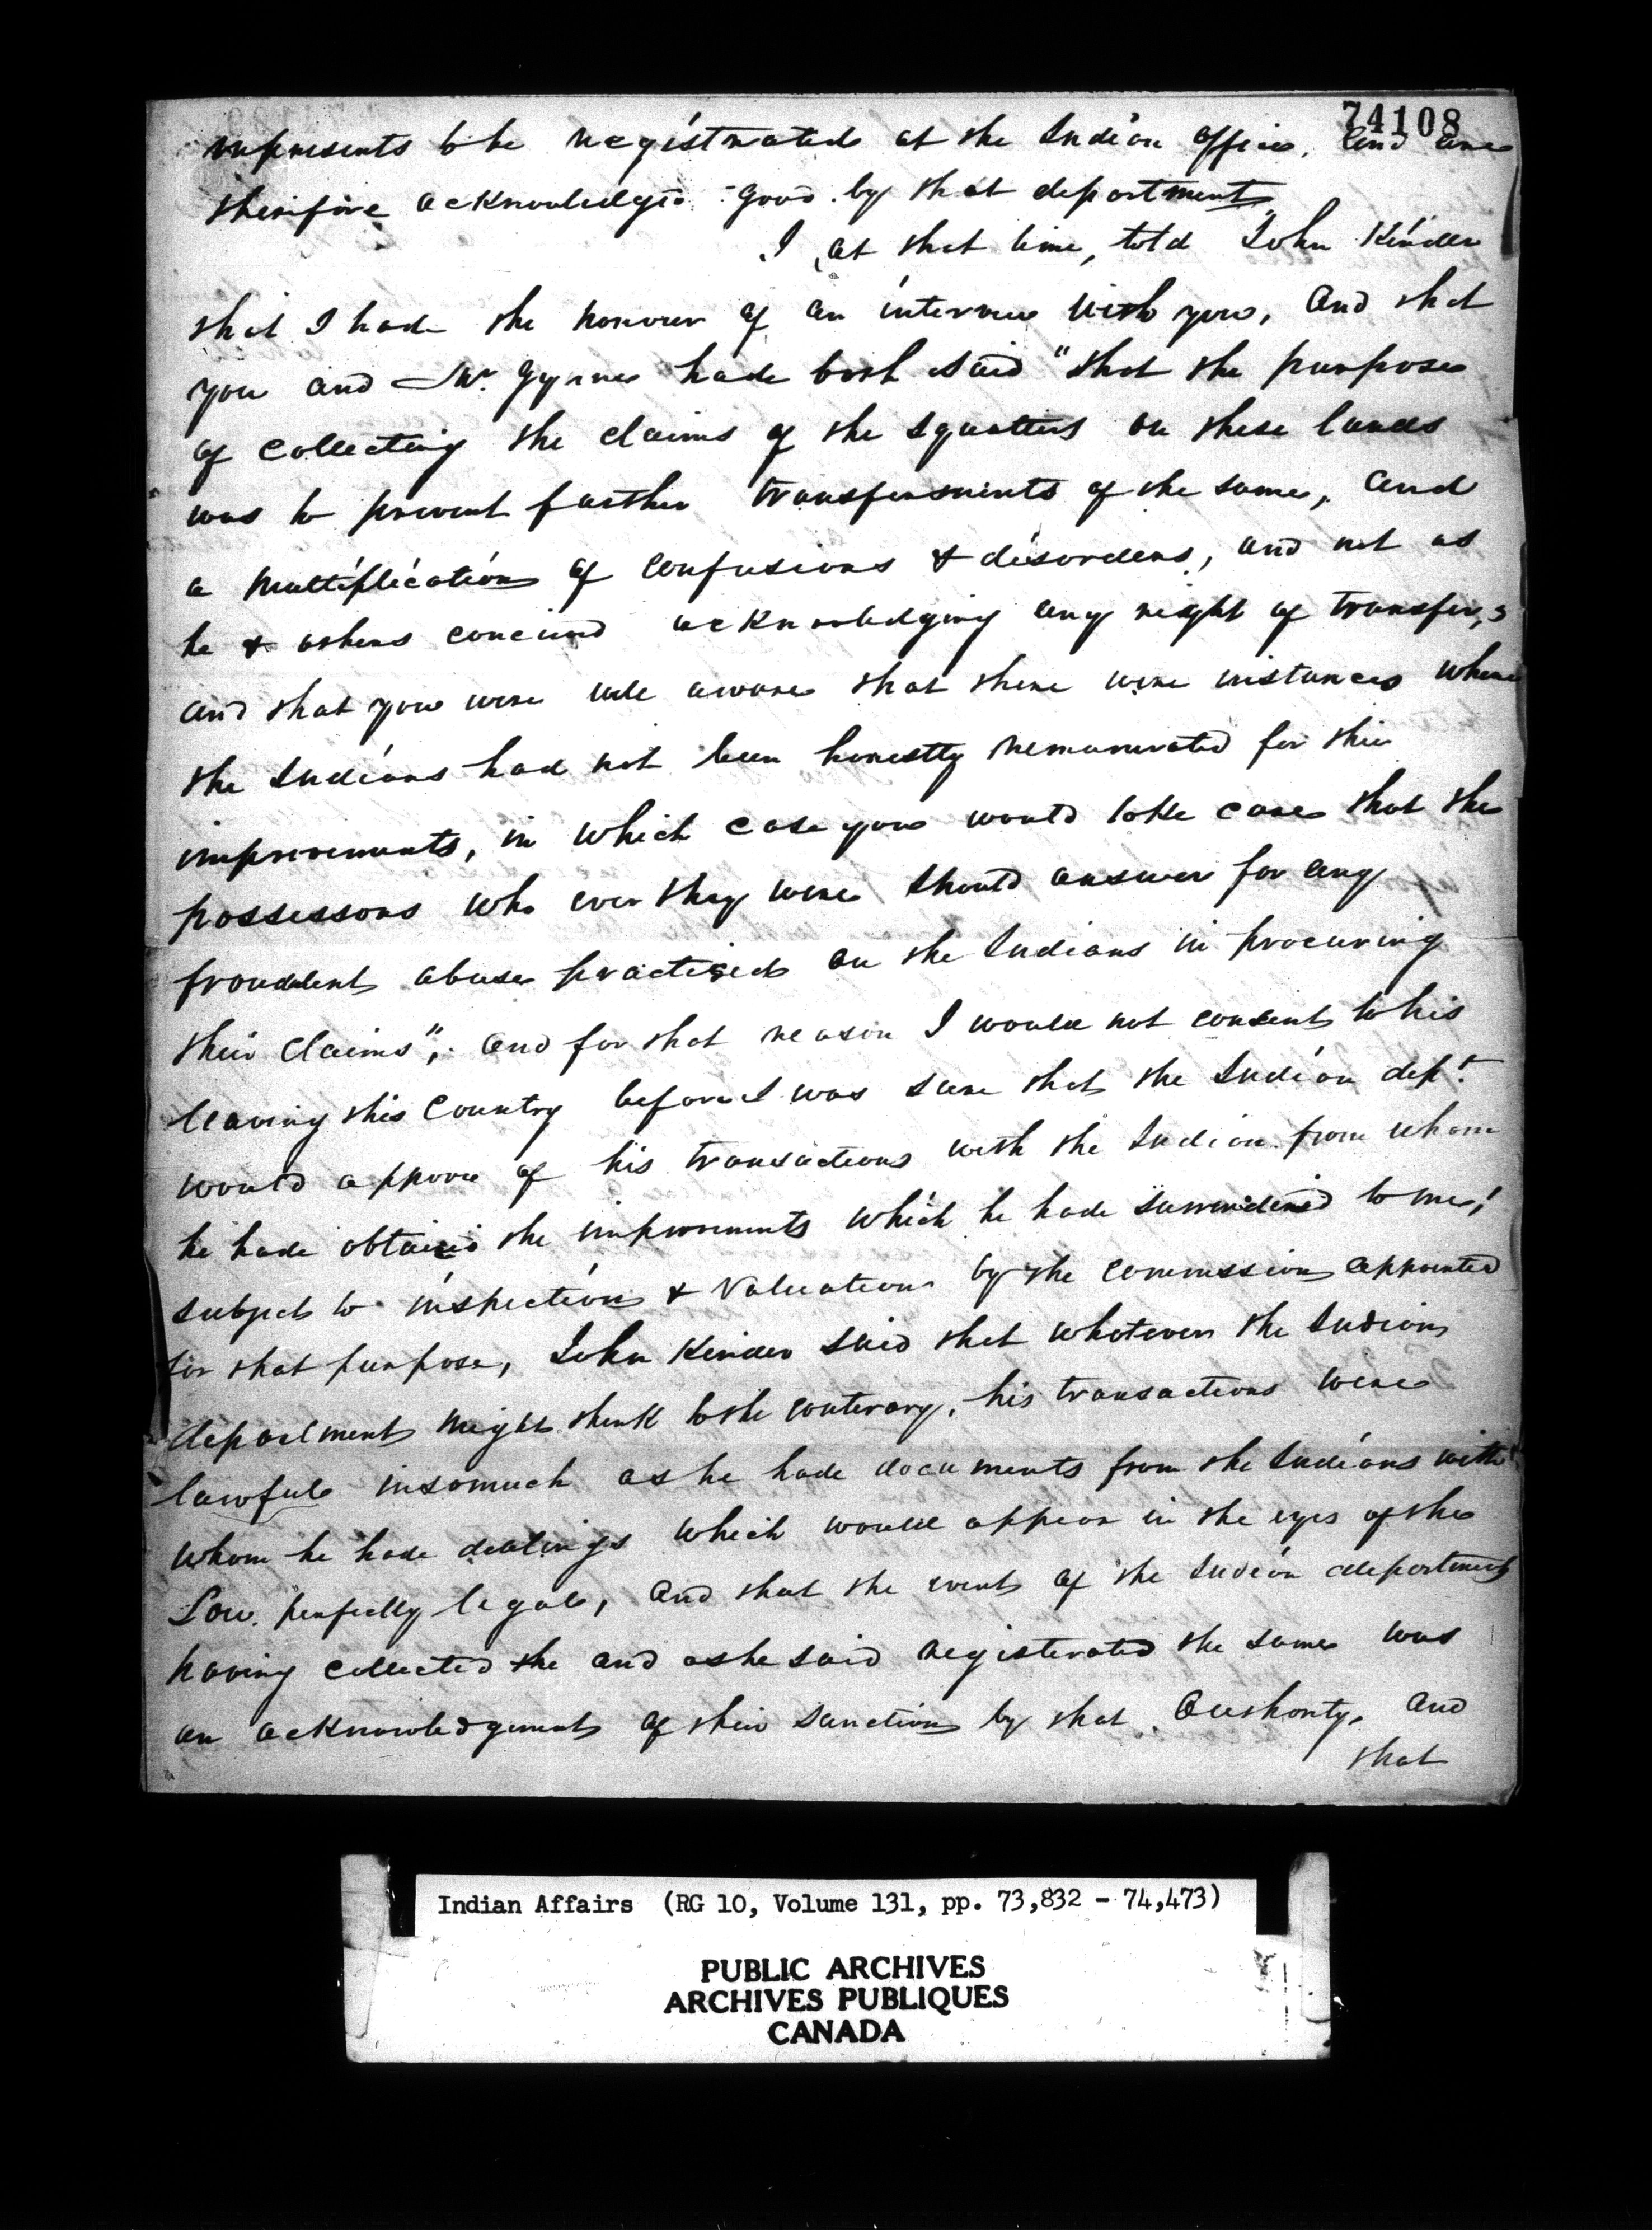 74108
represents to be registrated at the Indian Office, and are
therefore acknowledged good by that department
I, at that time, told John Kinder
that I had the honour of an interview with you, and that
you and Mr. Gynne had both said "that the purpose
of collecting the claims of the squatters on these lands
was to prevent further transferments of the same, and
a multiplication of confusions & disorders, and not as
he & others conceived acknowledging any right of transfer,
and that you were well aware that there were instances where
the Indians had not been honestly remunerated for their
improvements, in which case you would take care that the
possessors who ever they were should answer for any
fraudulent abuse practised on the Indians in procuring
their claims", and for that reason I would not consent to his
leaving this Country before I was sure that the Indian dept.
would approve of his transactions with the Indian from whom
he had obtained the improvements which he had surrendered to me,
subject to inspection & Valuation by the commission appointed
for that purpose, John Kinder said that whatever the Indian
department might think to the conterary, his transactions were
lawful insomuch as he had documents from the Indians with
whom he had dealings which would appear in the eyes of the
Law perfectly legal, and that the event of the Indian department
having collected the and as he said registerated the same was
an acknowledgement of their sanction by that Authority, and
that
Indian Affairs (RG 10, Volume 131, pp. 73,832 - 74,473)
PUBLIC ARCHIVES
ARCHIVES PUBLIQUES
CANADA